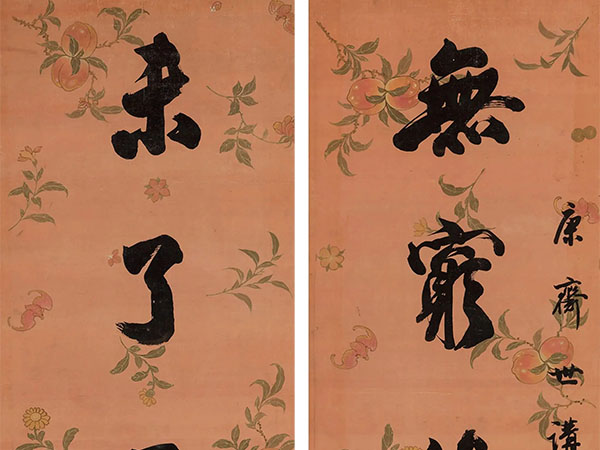 康齋世講
無窮
未了